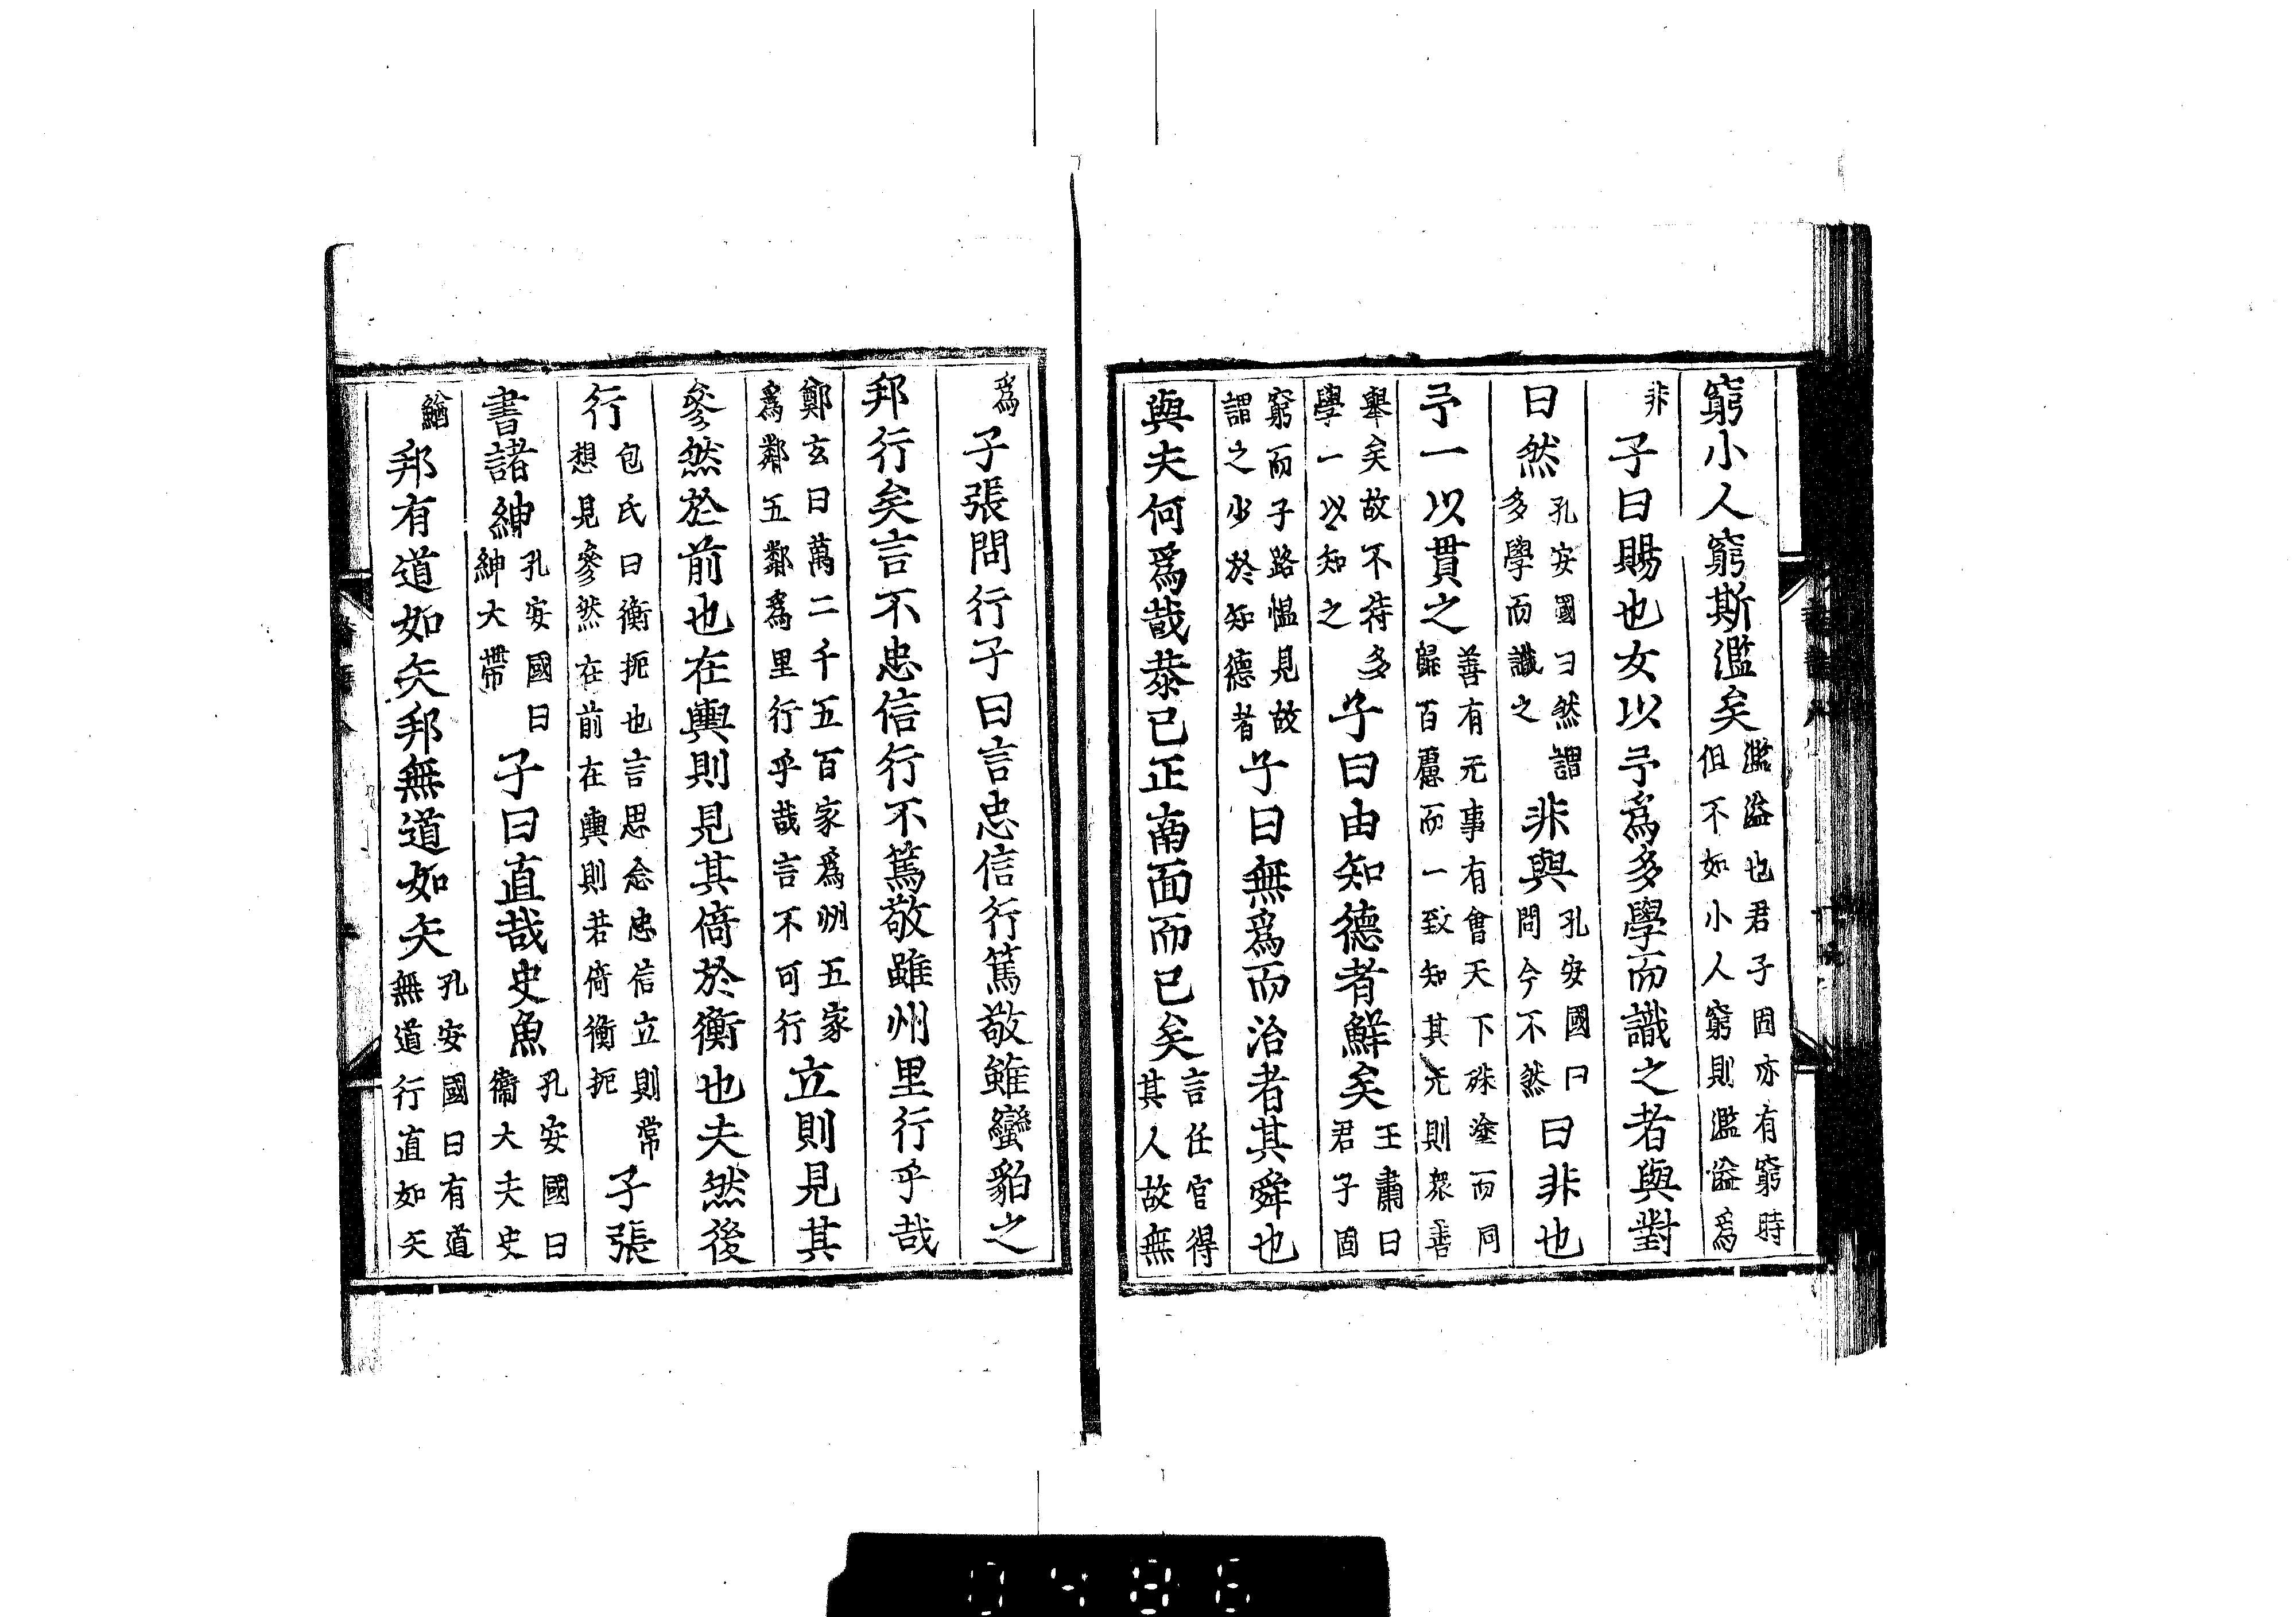 窮小人窮斯濫矣濫溢也君子固亦有窮時但不如小人窮則濫溢爲
非子曰賜也女以予爲多學而識之者與對
曰然孔安國曰然謂多學而識之非與孔安國曰問今不然曰非也
予一以貫之善有元事有會天下殊塗而同歸百慮而一致知其元則衆善
舉矣故不待多學一以知之子曰由知德者鮮矣王肅曰君子固
窮而子路慍見故謂之少於知德者子曰無爲而治者其舜也
與夫何爲哉恭己正南面而已矣言任官得其人故無
爲子張問行子曰言忠信行篤敬雖蠻貊之
邦行矣言不忠信行不篤敬雖州里行乎哉
鄭玄曰萬二千五百家爲州五家爲鄰五鄰爲里行乎哉言不可行立則見其
參然於前也在輿則見其倚於衡也夫然後
行包氏曰衡扼也言思念忠信立則常想見參然在前在輿則若倚衡扼子張
書諸紳孔安國曰紳大帶子曰直哉史魚孔安國曰衞大夫史
鰌邦有道如矢邦無道如矢孔安國曰有道無道行直如矢
0486